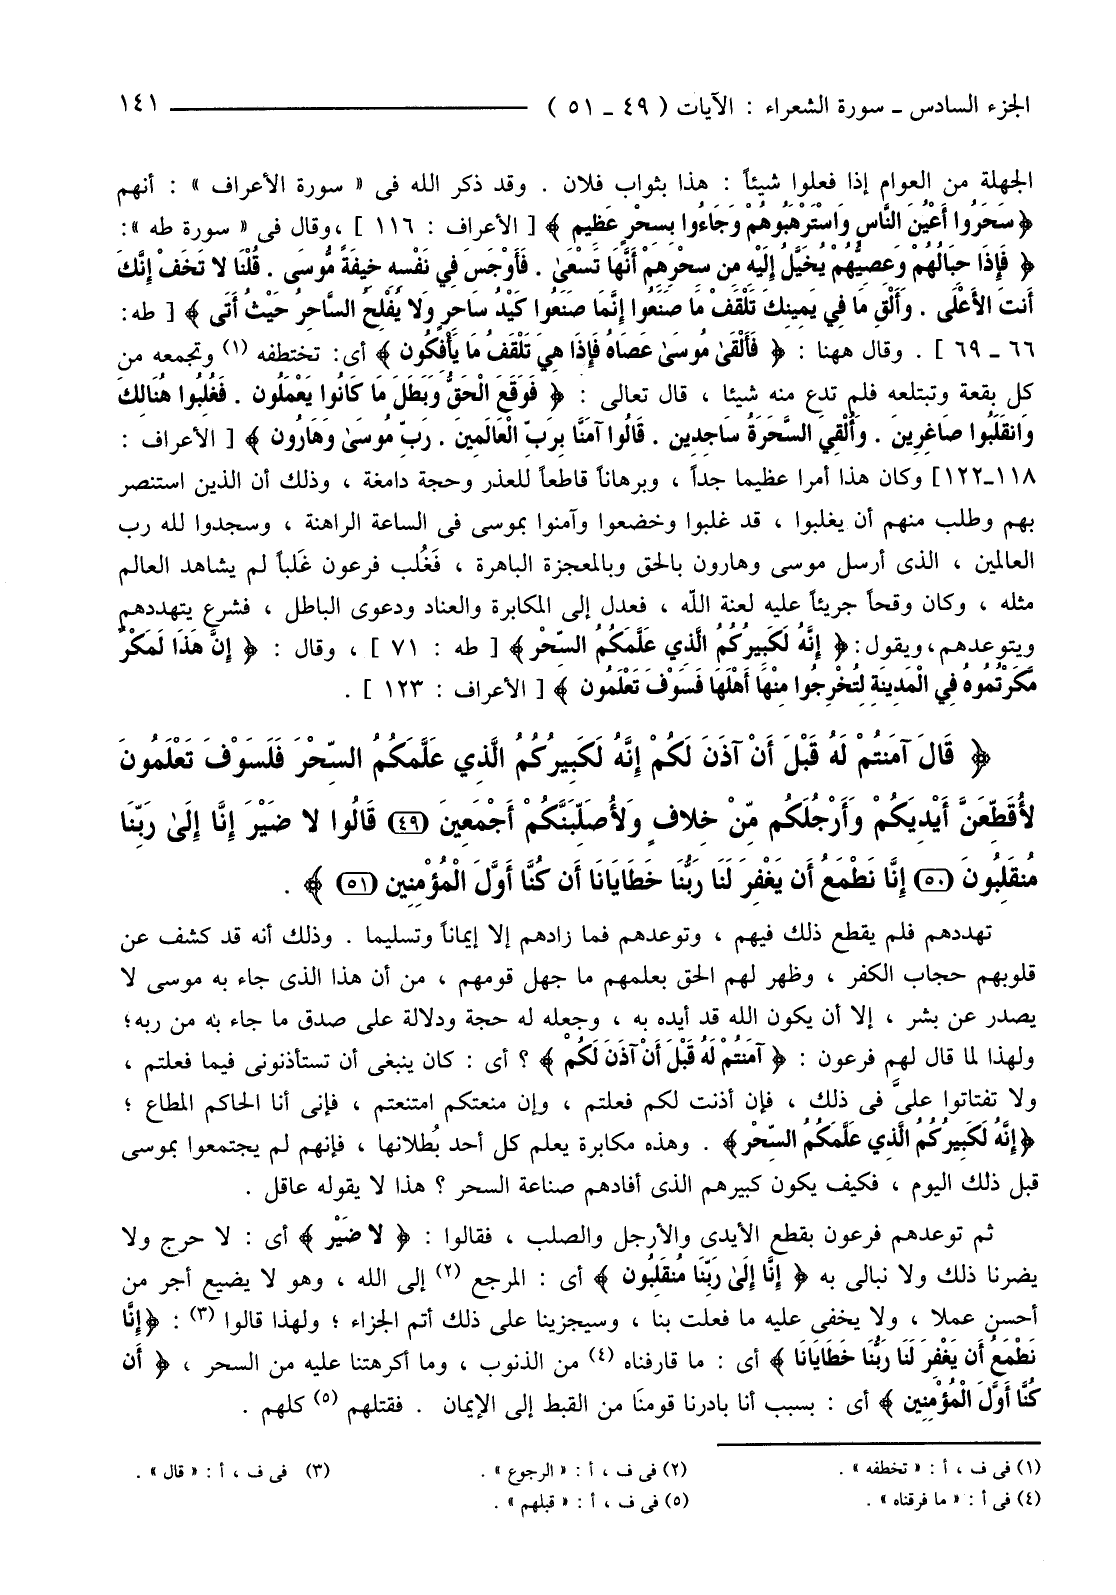 الجزء السادس ـ سورة الشعراء : الآيات ( ٤٩ ـ ٥١ ) ١٤١
الجهلة من العوام إذا فعلوا شيئاً : هذا بثواب فلان . وقد ذكر الله فى « سورة الأعراف » : أنهم
﴿ سَحَرُوا أَعْيُنَ النَّاسِ وَاسْتَرْهَبُوهُمْ وَجَاءُوا بِسِحْرٍ عَظِيم ﴾ [ الأعراف : ١١٦ ] ، وقال فى « سورة طه »:
﴿ فَإِذَا حِبَالُهُمْ وَعِصِيُّهُمْ يُخَيَّلُ إِلَيْهِ مِن سِحْرِهِمْ أَنَّهَا تَسْعَىٰ . فَأَوْجَسَ فِي نَفْسِهِ خِيفَةً مُّوسَى . قُلْنَا لا تَخَفْ إِنَّكَ
أَنتَ الأَعْلَى . وَأَلْقِ مَا فِي يَمِينِكَ تَلْقَفْ مَا صَنَعُوا إِنَّمَا صَنَعُوا كَيْدُ سَاحِرٍ وَلا يُفْلِحُ السَّاحِرُ حَيْثُ أَتَى ﴾ [ طه :
٦٦ ـ ٦٩ ] . وقال ههنا : ﴿ فَأَلْقَىٰ مُوسَىٰ عَصَاهُ فَإِذَا هِيَ تَلْقَفُ مَا يَأْفِكُون ﴾ أى: تختطفه (١) وتجمعه من
كل بقعة وتبتلعه فلم تدع منه شيئا ، قال تعالى : ﴿ فَوَقَعَ الْحَقُّ وَبَطَلَ مَا كَانُوا يَعْمَلُون . فَغُلِبُوا هُنَالِكَ
وَانقَلَبُوا صَاغِرِينَ . وَأُلْقِيَ السَّحَرَةُ سَاجِدِين . قَالُوا آمَنَّا بِرَبِّ الْعَالَمِينَ . رَبِّ مُوسَىٰ وَهَارُون ﴾ [ الأعراف :
١١٨ـ١٢٢] وكان هذا أمرا عظيما جداً ، وبرهاناً قاطعاً للعذر وحجة دامغة ، وذلك أن الذين استنصر
بهم وطلب منهم أن يغلبوا ، قد غلبوا وخضعوا وآمنوا بموسى فى الساعة الراهنة ، وسجدوا لله رب
العالمين ، الذى أرسل موسى وهارون بالحق وبالمعجزة الباهرة ، فَغُلب فرعون غَلباً لم يشاهد العالم
مثله ، وكان وقحاً جريئاً عليه لعنة الله ، فعدل إلى المكابرة والعناد ودعوى الباطل ، فشرع يتهددهم
ويتوعدهم، ويقول: ﴿ إِنَّهُ لَكَبِيرُكُمُ الَّذِي عَلَّمَكُمُ السِّحْر ﴾ [ طه : ٧١ ] ، وقال : ﴿ إِنَّ هَذَا لَمَكْرٌ
مَّكَرْتُمُوهُ فِي الْمَدِينَةِ لِتُخْرِجُوا مِنْهَا أَهْلَهَا فَسَوْفَ تَعْلَمُون ﴾ [ الأعراف : ١٢٣ ] .
﴿ قَالَ آمَنتُمْ لَهُ قَبْلَ أَنْ آذَنَ لَكُمْ إِنَّهُ لَكَبِيرُكُمُ الَّذِي عَلَّمَكُمُ السِّحْرَ فَلَسَوْفَ تَعْلَمُونَ
لأُقَطِّعَنَّ أَيْدِيَكُمْ وَأَرْجُلَكُم مِّنْ خِلافٍ وَلأُصَلِّبَنَّكُمْ أَجْمَعِينَ (٤٩) قَالُوا لا ضَيْرَ إِنَّا إِلَىٰ رَبِّنَا
مُنقَلِبُونَ (٥٠) إِنَّا نَطْمَعُ أَن يَغْفِرَ لَنَا رَبُّنَا خَطَايَانَا أَن كُنَّا أَوَّلَ الْمُؤْمِنِين (٥١) ﴾ .
تهددهم فلم يقطع ذلك فيهم ، وتوعدهم فما زادهم إلا إيماناً وتسليما . وذلك أنه قد كشف عن
قلوبهم حجاب الكفر ، وظهر لهم الحق بعلمهم ما جهل قومهم ، من أن هذا الذى جاء به موسى لا
يصدر عن بشر ، إلا أن يكون الله قد أيده به ، وجعله له حجة ودلالة على صدق ما جاء به من ربه؛
ولهذا لما قال لهم فرعون : ﴿ آمَنتُمْ لَهُ قَبْلَ أَنْ آذَنَ لَكُمْ ﴾ ؟ أى : كان ينبغى أن تستأذنونى فيما فعلتم ،
ولا تفتاتوا علىَّ فى ذلك ، فإن أذنت لكم فعلتم ، وإن منعتكم امتنعتم ، فإنى أنا الحاكم المطاع ؛
﴿إِنَّهُ لَكَبِيرُكُمُ الَّذِي عَلَّمَكُمُ السِّحْر﴾ . وهذه مكابرة يعلم كل أحد بُطلانها ، فإنهم لم يجتمعوا بموسى
قبل ذلك اليوم ، فكيف يكون كبيرهم الذى أفادهم صناعة السحر ؟ هذا لا يقوله عاقل .
ثم توعدهم فرعون بقطع الأيدى والأرجل والصلب ، فقالوا : ﴿ لا ضَيْر ﴾ أى : لا حرج ولا
يضرنا ذلك ولا نبالى به ﴿ إِنَّا إِلَىٰ رَبِّنَا مُنقَلِبُون ﴾ أى : المرجع (٢) إلى الله ، وهو لا يضيع أجر من
أحسن عملا ، ولا يخفى عليه ما فعلت بنا ، وسيجزينا على ذلك أتم الجزاء ؛ ولهذا قالوا (٣) : ﴿إِنَّا
نَطْمَعُ أَن يَغْفِرَ لَنَا رَبُّنَا خَطَايَانَا ﴾ أى : ما قارفناه (٤) من الذنوب ، وما أكرهتنا عليه من السحر ، ﴿ أَن
كُنَّا أَوَّلَ الْمُؤْمِنِين ﴾ أى : بسبب أنا بادرنا قومنَا من القبط إلى الإيمان . فقتلهم (٥) كلهم .
(١) فى ف ، أ : « تخطفه » . (٢) فى ف ، أ : « الرجوع » . (٣) فى ف ، أ : « قال » .
(٤) فى أ : « ما فرقناه » . (٥) فى ف ، أ : « قبلهم » .